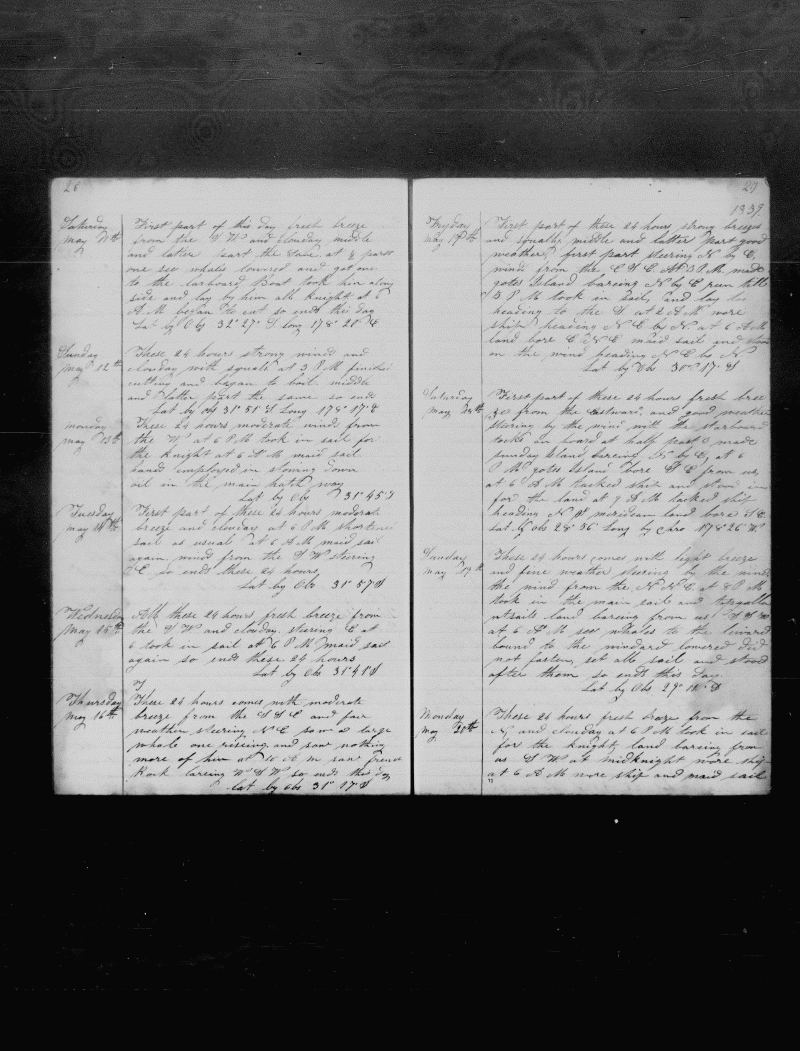 28
Saturday May 11th
First part of this day fresh breeze
from the S W and clouday middle
and latter part the same at ½ past
one see whales lowered and got one
to the larboard Boat took him along
side and lay by him all knight at 6
A M began to cut so ends this day
Lat by Obs 32° 27' S Long 178° 20' E
Sunday May 12th
These 24 hours strong winds and
clouday with squals at 3 P M finished
cutting and began to boil middle
and latter part the same so ends
Lat by obs 31° 51' S Long 178° 17' E
monday may 13th
These 24 hours moderate wind from
the W at 6 P M took in sail for
the knight at 6 A M maid sail
hands employed on stowing down
oil in the main hatch way
Lat by Obs 31° 45' S
Tuesday may 14th
First part of these 24 hours moderate
breeze and clouday at 6 P M shortened
sail as usual at 6 A M maid sail
again winds from the S W steering
E so ends these 24 hours
Lat by Obs 31° 57' S
Wednesday May 15th
All these 24 hours fresh breeze from
the S W and clouday stering E at
6 took in sail at 6 P M maid sail
again so ends these 24 hours
Lat by Obs 31° 41' S
Thursday May 16th
These 24 hours comes with moderate
breeze from the S S E and fair
weather steering N E saw a large
whale one riseing and saw nothing
more of him at 10 A m saw french
Rock bareing W S W so ends this day
Lat by obs 31° 17' S
29
1839
Fryday May 17th
First part of these 24 hours strong breezes
and squaly middle and latter part good
weather first part steering N by E,
wind from the E S E At 3 P M made
gotes Island bareing N by E run till
5 P M took in sail, and lay by
heading to the S at 2 A M wore
ship heading N E by N. at 6 A M
land bore E N E maid sail and stood
on the wind heading N E by N
Lat by Obs 30° 17' S
Saturday May 18th
First part of these 24 hours fresh bree
ze from the Eastward. and good weather
steering by the wind with the starboard
tacks on board at half past made
sunday Island bareing by E, at 6
P M gotes Island bore from us,
at 6 A M tacked ship and stood in
for the land at 9 A M tacked ship
heading N at meridean land bore S E
Lat by obs 28° 56' Long by Chro 178° 26' W
Sunday May 19th
These 24 hours comes with light breeze
and fine weather steering by the wind
the wind from the N N E at 8 P M
took in the main sail and topgallan
ntsails land bareing from us S S W
at 6 A M see whales to the leward
bound to the windard lowered did
not fasten, set all sail and stood
after them so ends this day
Lat by Obs 29° 18' S
Monday May 20th
These 24 hours fresh breze from the
N, and clouday at 6 P M took in sail
for the knight, land bareing from
us S W at midknight wore ship
at 6 A M wore ship and maid sail